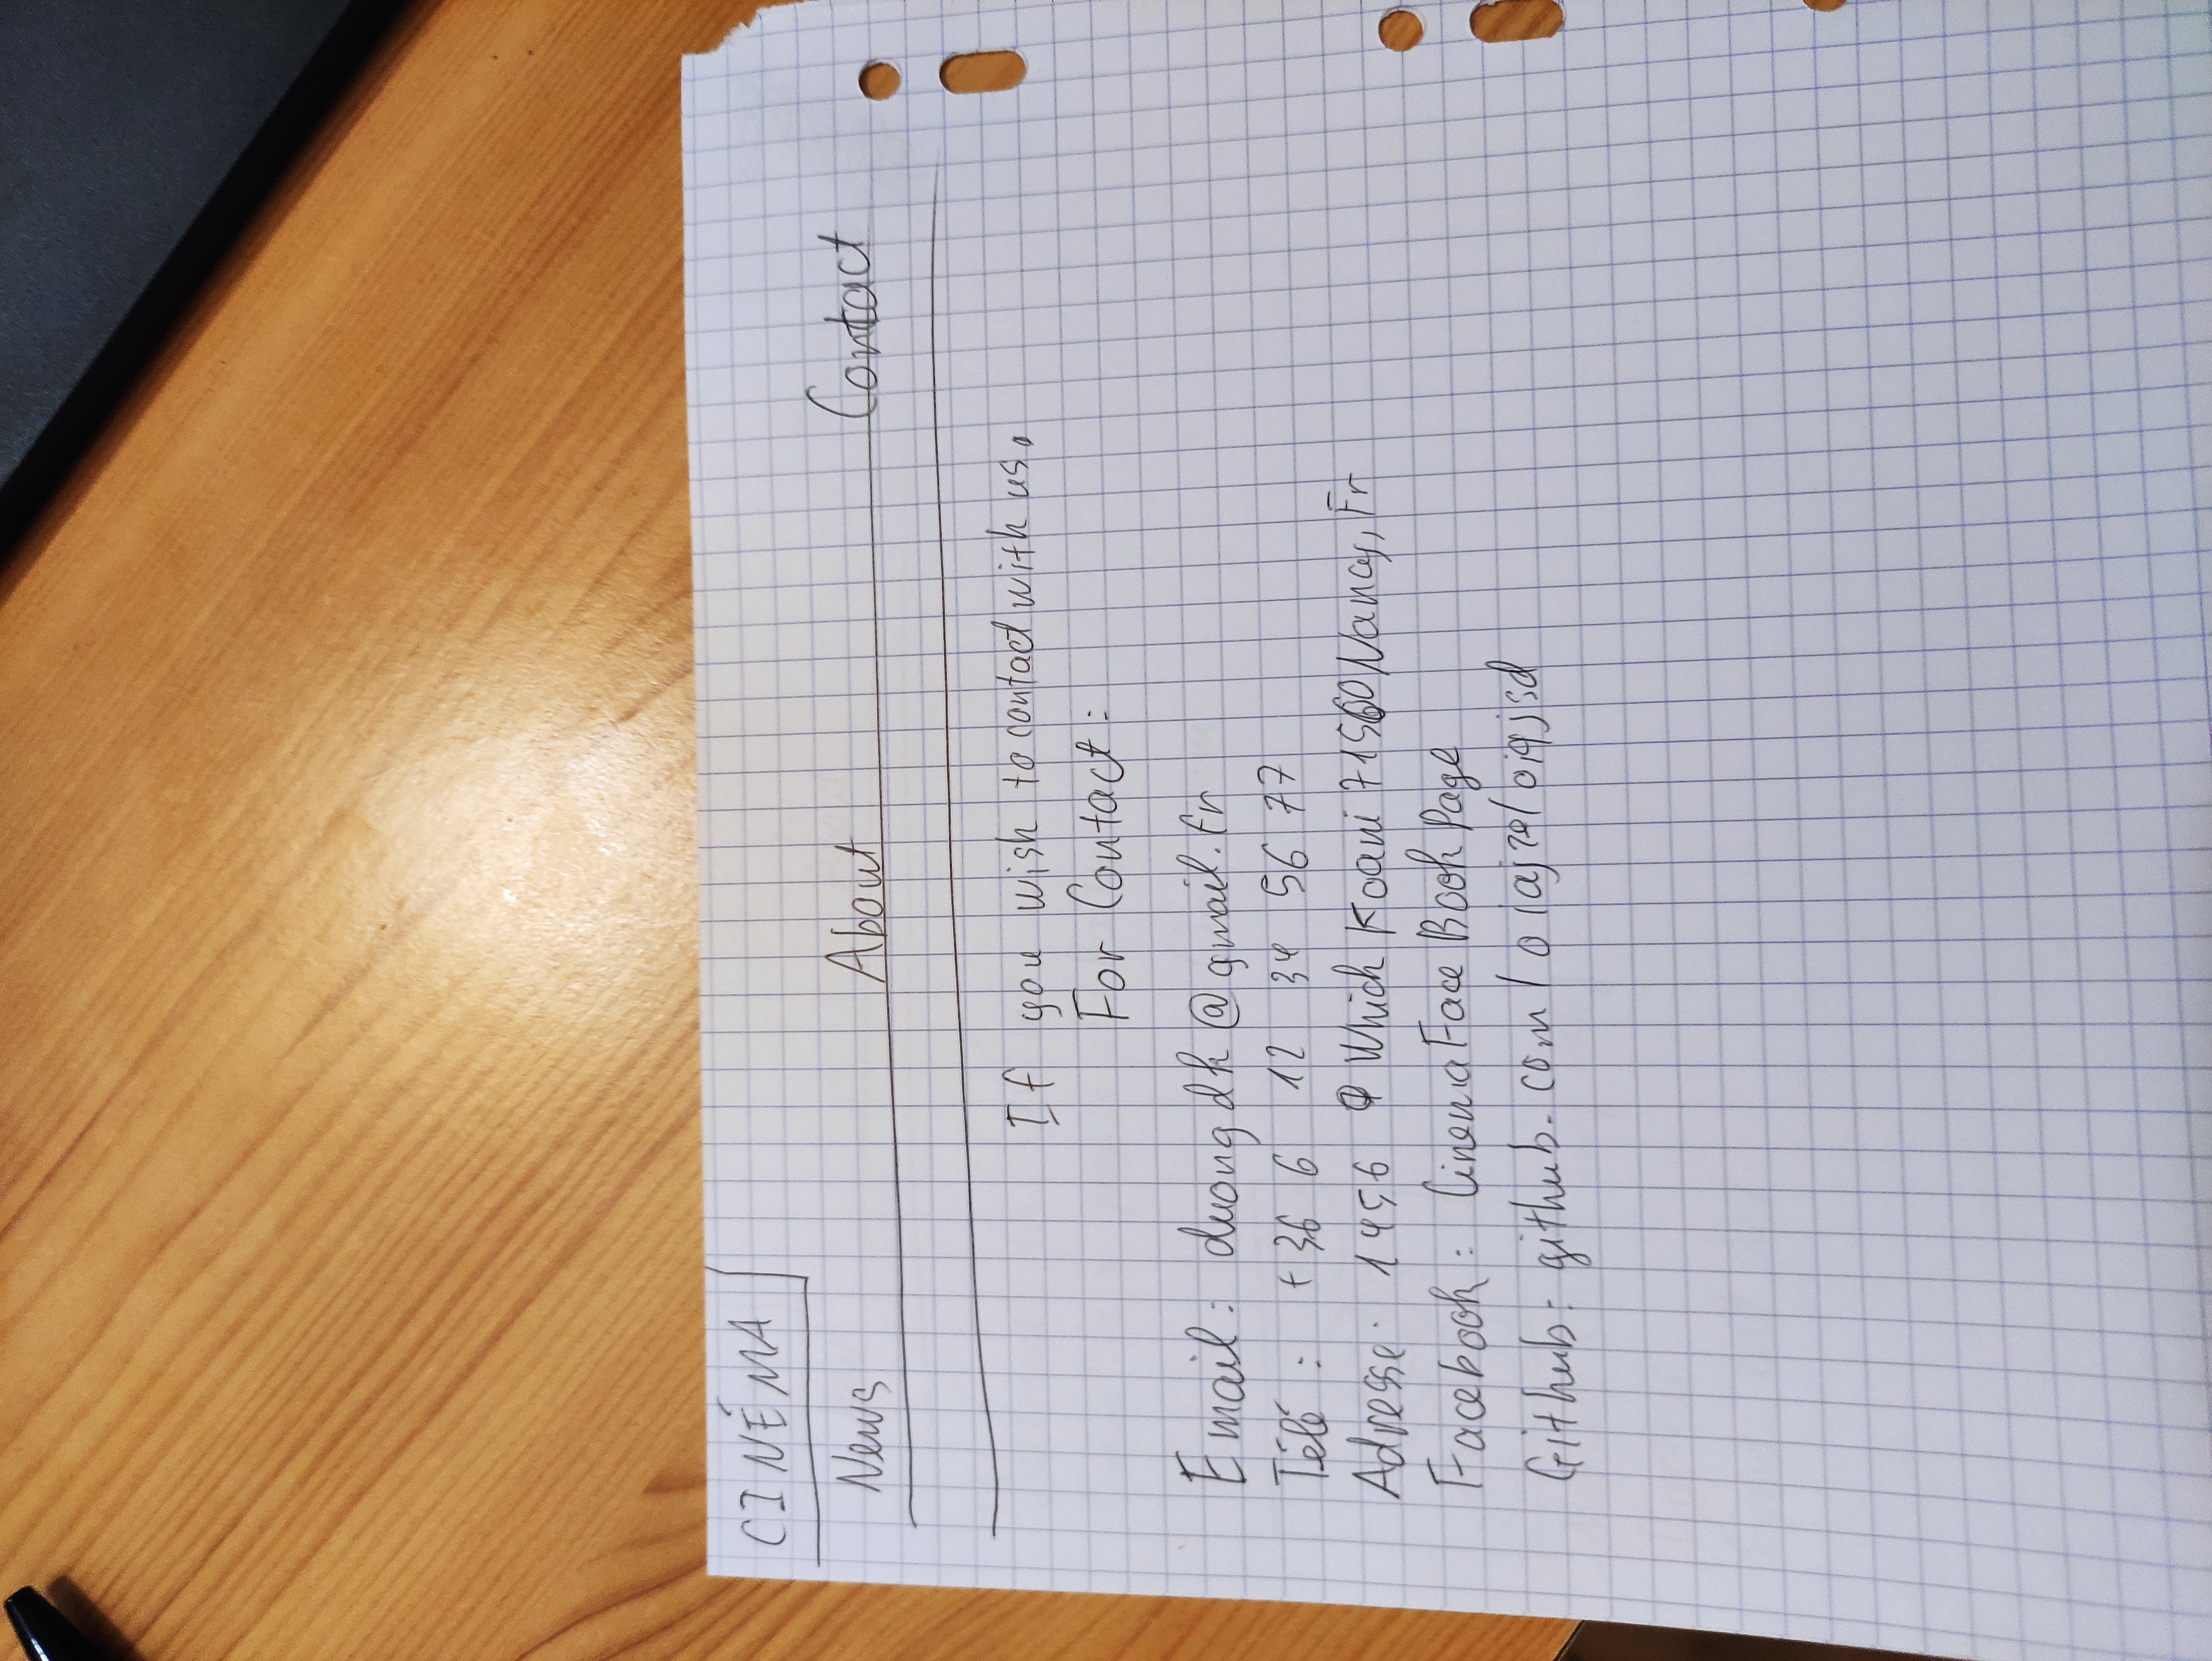 CINÉMA
News About Contact
If you wish to contact with us.
For Contact:
Email: duongdk@gmail.fr
Télé: +36 6 12 34 56 77
Adresse: 1456 Which Koani 71560 Nancy, Fr
Facebook: Cinema Face Book Page
Github: github.com/